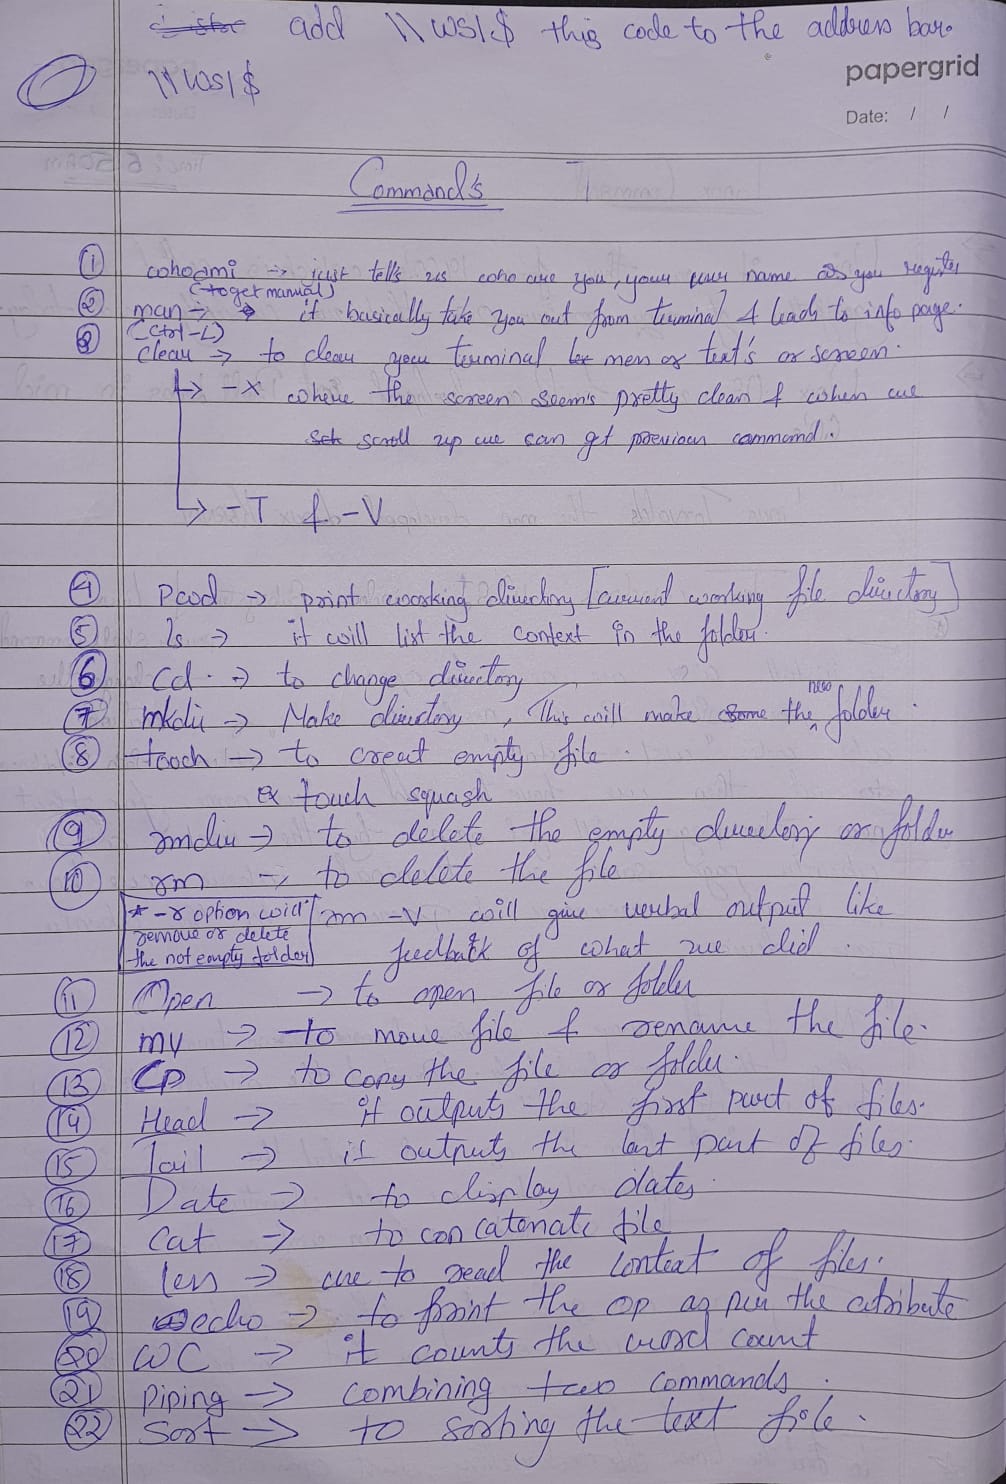 add \\ws1$ this code to the address bar.
\\ws1$
papergrid
Date: / /
Commands
① whoami → just tells us who are you, your user name as you register
(to get manual)
② man → it basically take you out from terminal & leads to info page.
(Ctrl-L)
③ clear → to clear your terminal of text's or screen.
→ -x where the screen seem's pretty clean & when we
scroll up we can get previous command.
→ -T & -V
④ Pwd → print working directory [current working file directory]
⑤ ls → it will list the context in the folder.
⑥ Cd → to change directory
⑦ mkdir → Make directory, This will make the new folder.
⑧ touch → to creat empty file.
ex touch squash
⑨ rmdir → to delete the empty directory or folder
⑩ rm → to delete the file
* -r option will remove or delete the not empty folder
rm -V will give verbal output like
feedback of what we did.
⑪ Open → to open file or folder
⑫ mv → to move file & rename the file.
⑬ Cp → to copy the file or folder.
⑭ Head → it outputs the first part of files.
⑮ Tail → it outputs the last part of files.
⑯ Date → to display dates.
⑰ Cat → to concatenate file
⑱ less → use to read the context of files.
⑲ echo → to print the op as per the atribute
⑳ WC → it counts the word count
㉑ Piping → Combining two commands.
㉒ Sort → to sorting the text file.